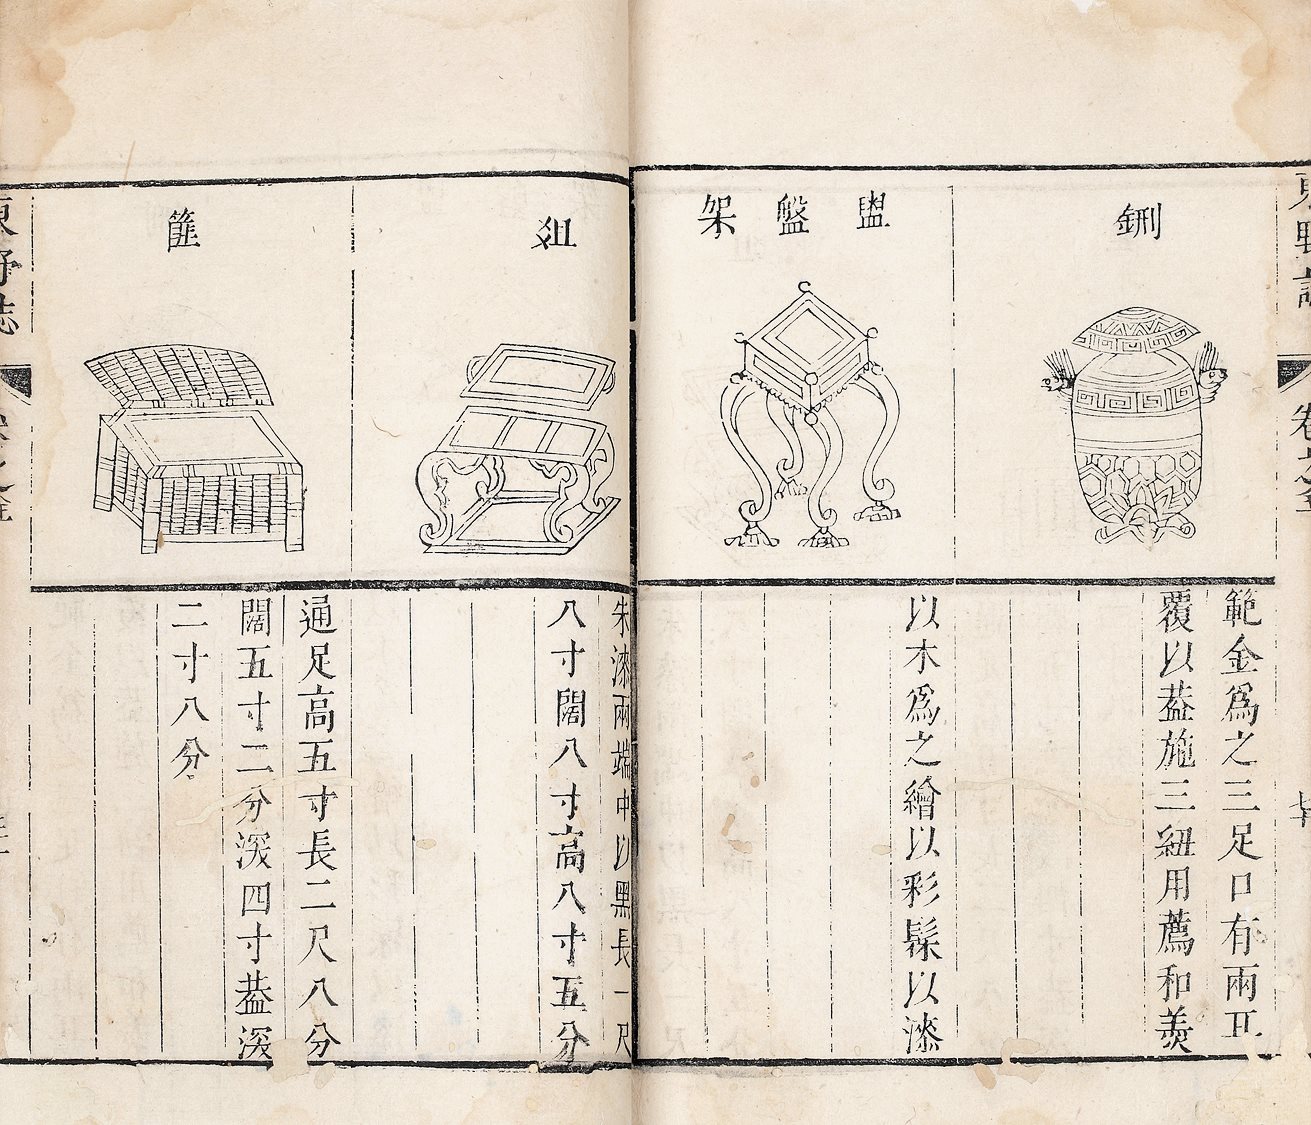 東野誌
鉶
範金爲之三足口有兩耳
覆以葢施三紐用薦和羹
盥盤架
以木爲之繪以彩髹以漆
俎
朱漆兩端中以黑長一尺
八寸闊八寸高八寸五分
篚
通足高五寸長二尺八分
闊五寸二分深四寸葢深
二寸八分
東野誌